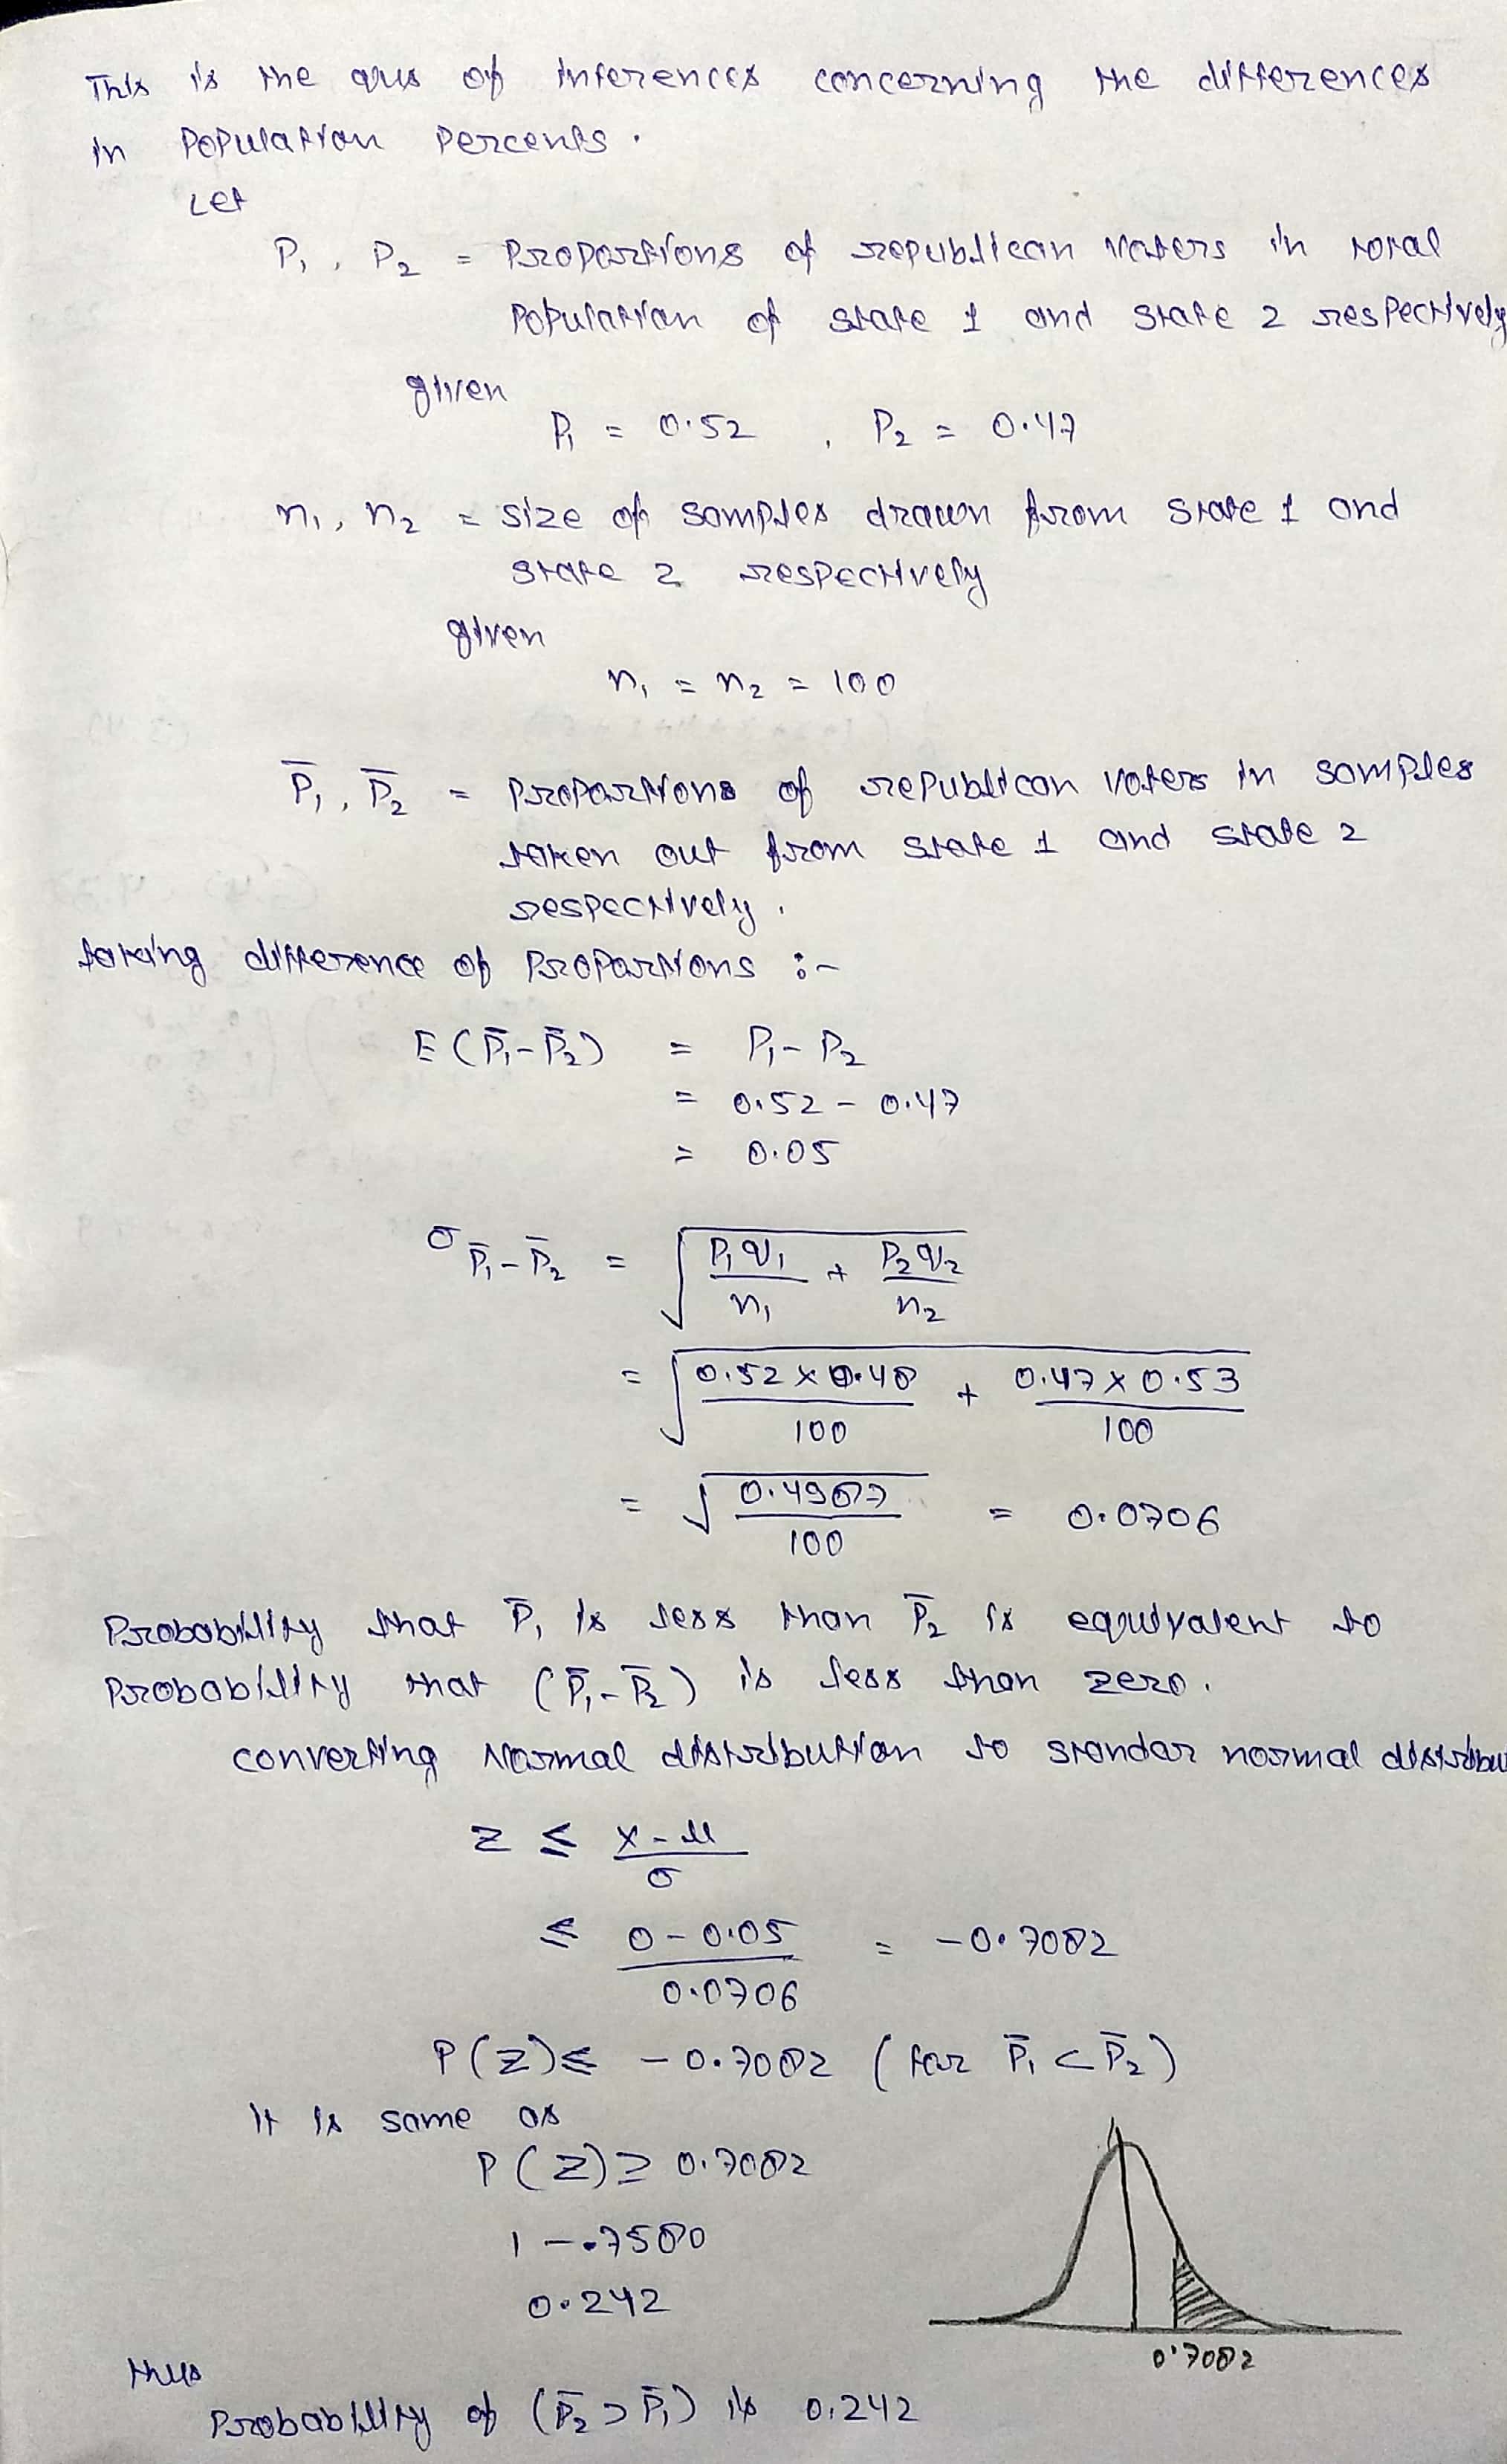 This is the ques of inferences concerning the differences
in Population Percents.
Let
P₁, P₂ = Proportions of republican voters in total
Population of state 1 and state 2 respectively
given
P₁ = 0.52 , P₂ = 0.47
n₁, n₂ = size of samples drawn from state 1 and
state 2 respectively
given
n₁ = n₂ = 100
P̄₁, P̄₂ = Proportions of republican voters in samples
taken out from state 1 and state 2
respectively.
taking difference of Proportions :-
E(P̄₁-P̄₂) = P₁-P₂
= 0.52 - 0.47
= 0.05
σ P̄₁-P̄₂ = √(P₁q₁/n₁ + P₂q₂/n₂)
= √(0.52×0.48/100 + 0.47×0.53/100)
= √(0.4987/100) = 0.0706
Probability that P̄₁ is less than P̄₂ is equivalent to
Probability that (P̄₁-P̄₂) is less than zero.
converting Normal distribution to standar normal distribu
Z ≤ x-μ/σ
≤ 0-0.05/0.0706 = -0.7082
P(Z)≤ -0.7082 (for P̄₁<P̄₂)
It is same as
P(Z)≥ 0.7082
1 - .7580
0.242
0.7082
thus
Probability of (P̄₂>P̄₁) is 0.242